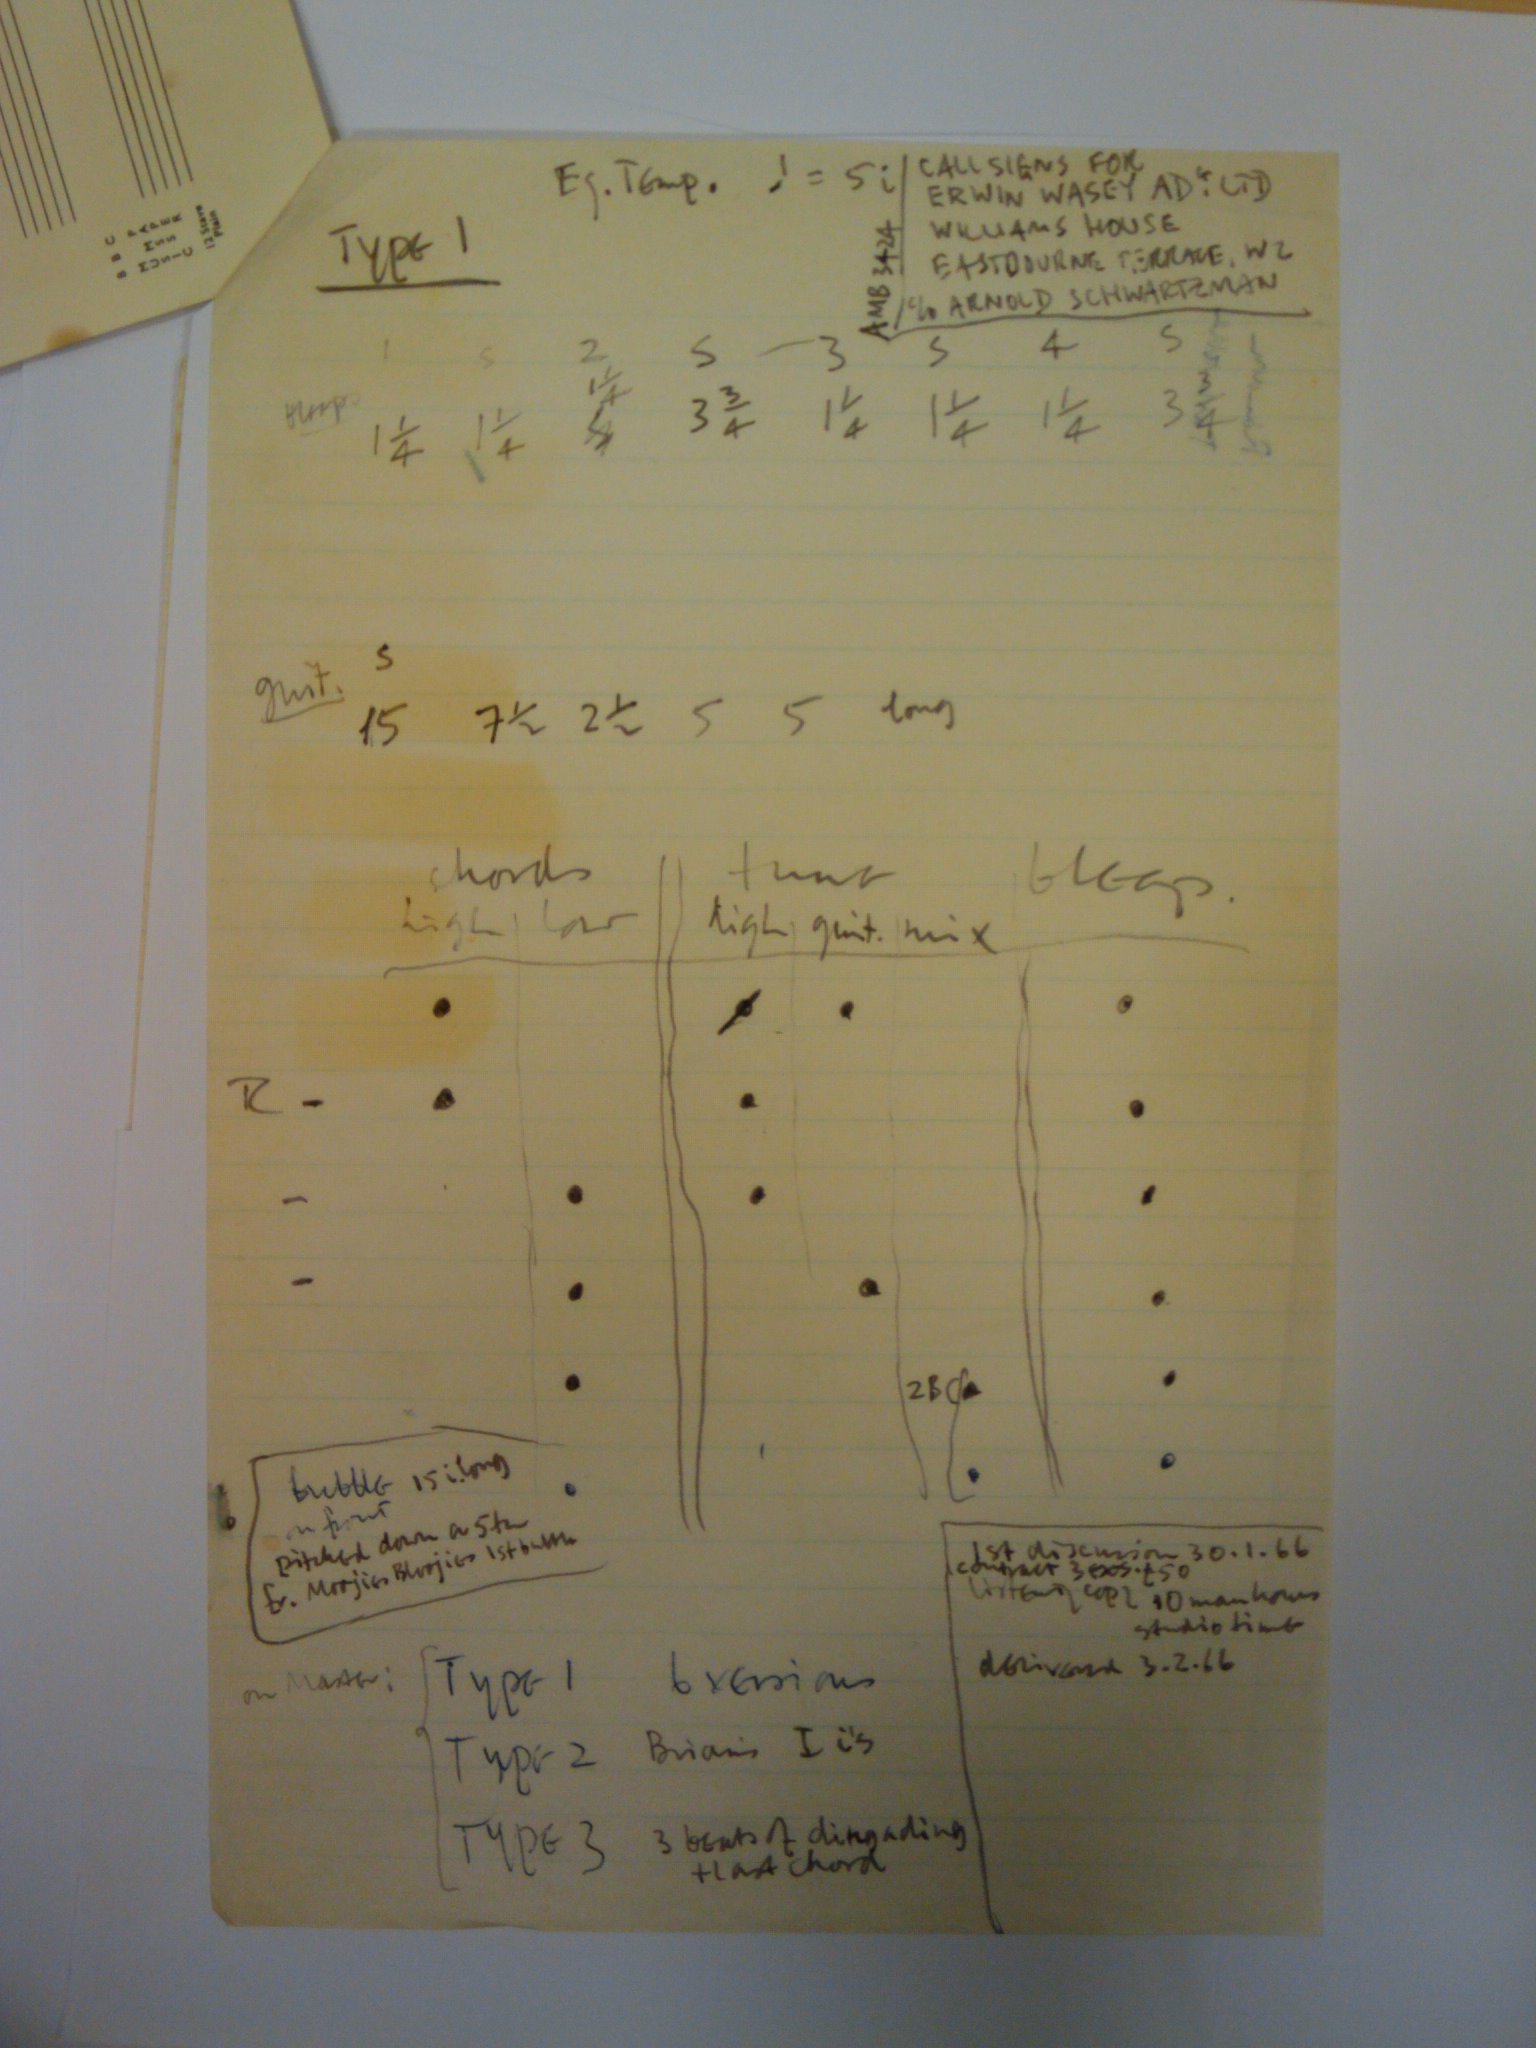 B B C
MUSIC
MSS
PAPER
12 Stave
Plain
Eq. Temp. ♩ = 5 i
CALLSIGNS FOR
ERWIN WASEY ADv. LTD
WILLIAMS HOUSE
EASTBOURNE TERRACE, W2
c/o ARNOLD SCHWARTZMAN
AMB 3424
TYPE 1
1 5 2 5 — 3 5 4 5
bleeps
1 1/4 1 1/4 1 1/4 3 3/4 1 1/4 1 1/4 1 1/4 3
guit.
5
15 7 1/2 2 1/2 5 5 long
chords tune bleeps.
high low high guit. mix
R -
-
-
2B
bubble 15 i. long
on front
pitched down a 5th
fr. Moogies Bloogies 1st bubble
1st discussion 30.1.66
contract 3 £50
listening copy 10 man hours
studio time
delivered 3.2.66
on Master:
TYPE 1 6 versions
TYPE 2 Brian's I i's
TYPE 3 3 beats of dingading
+ last chord